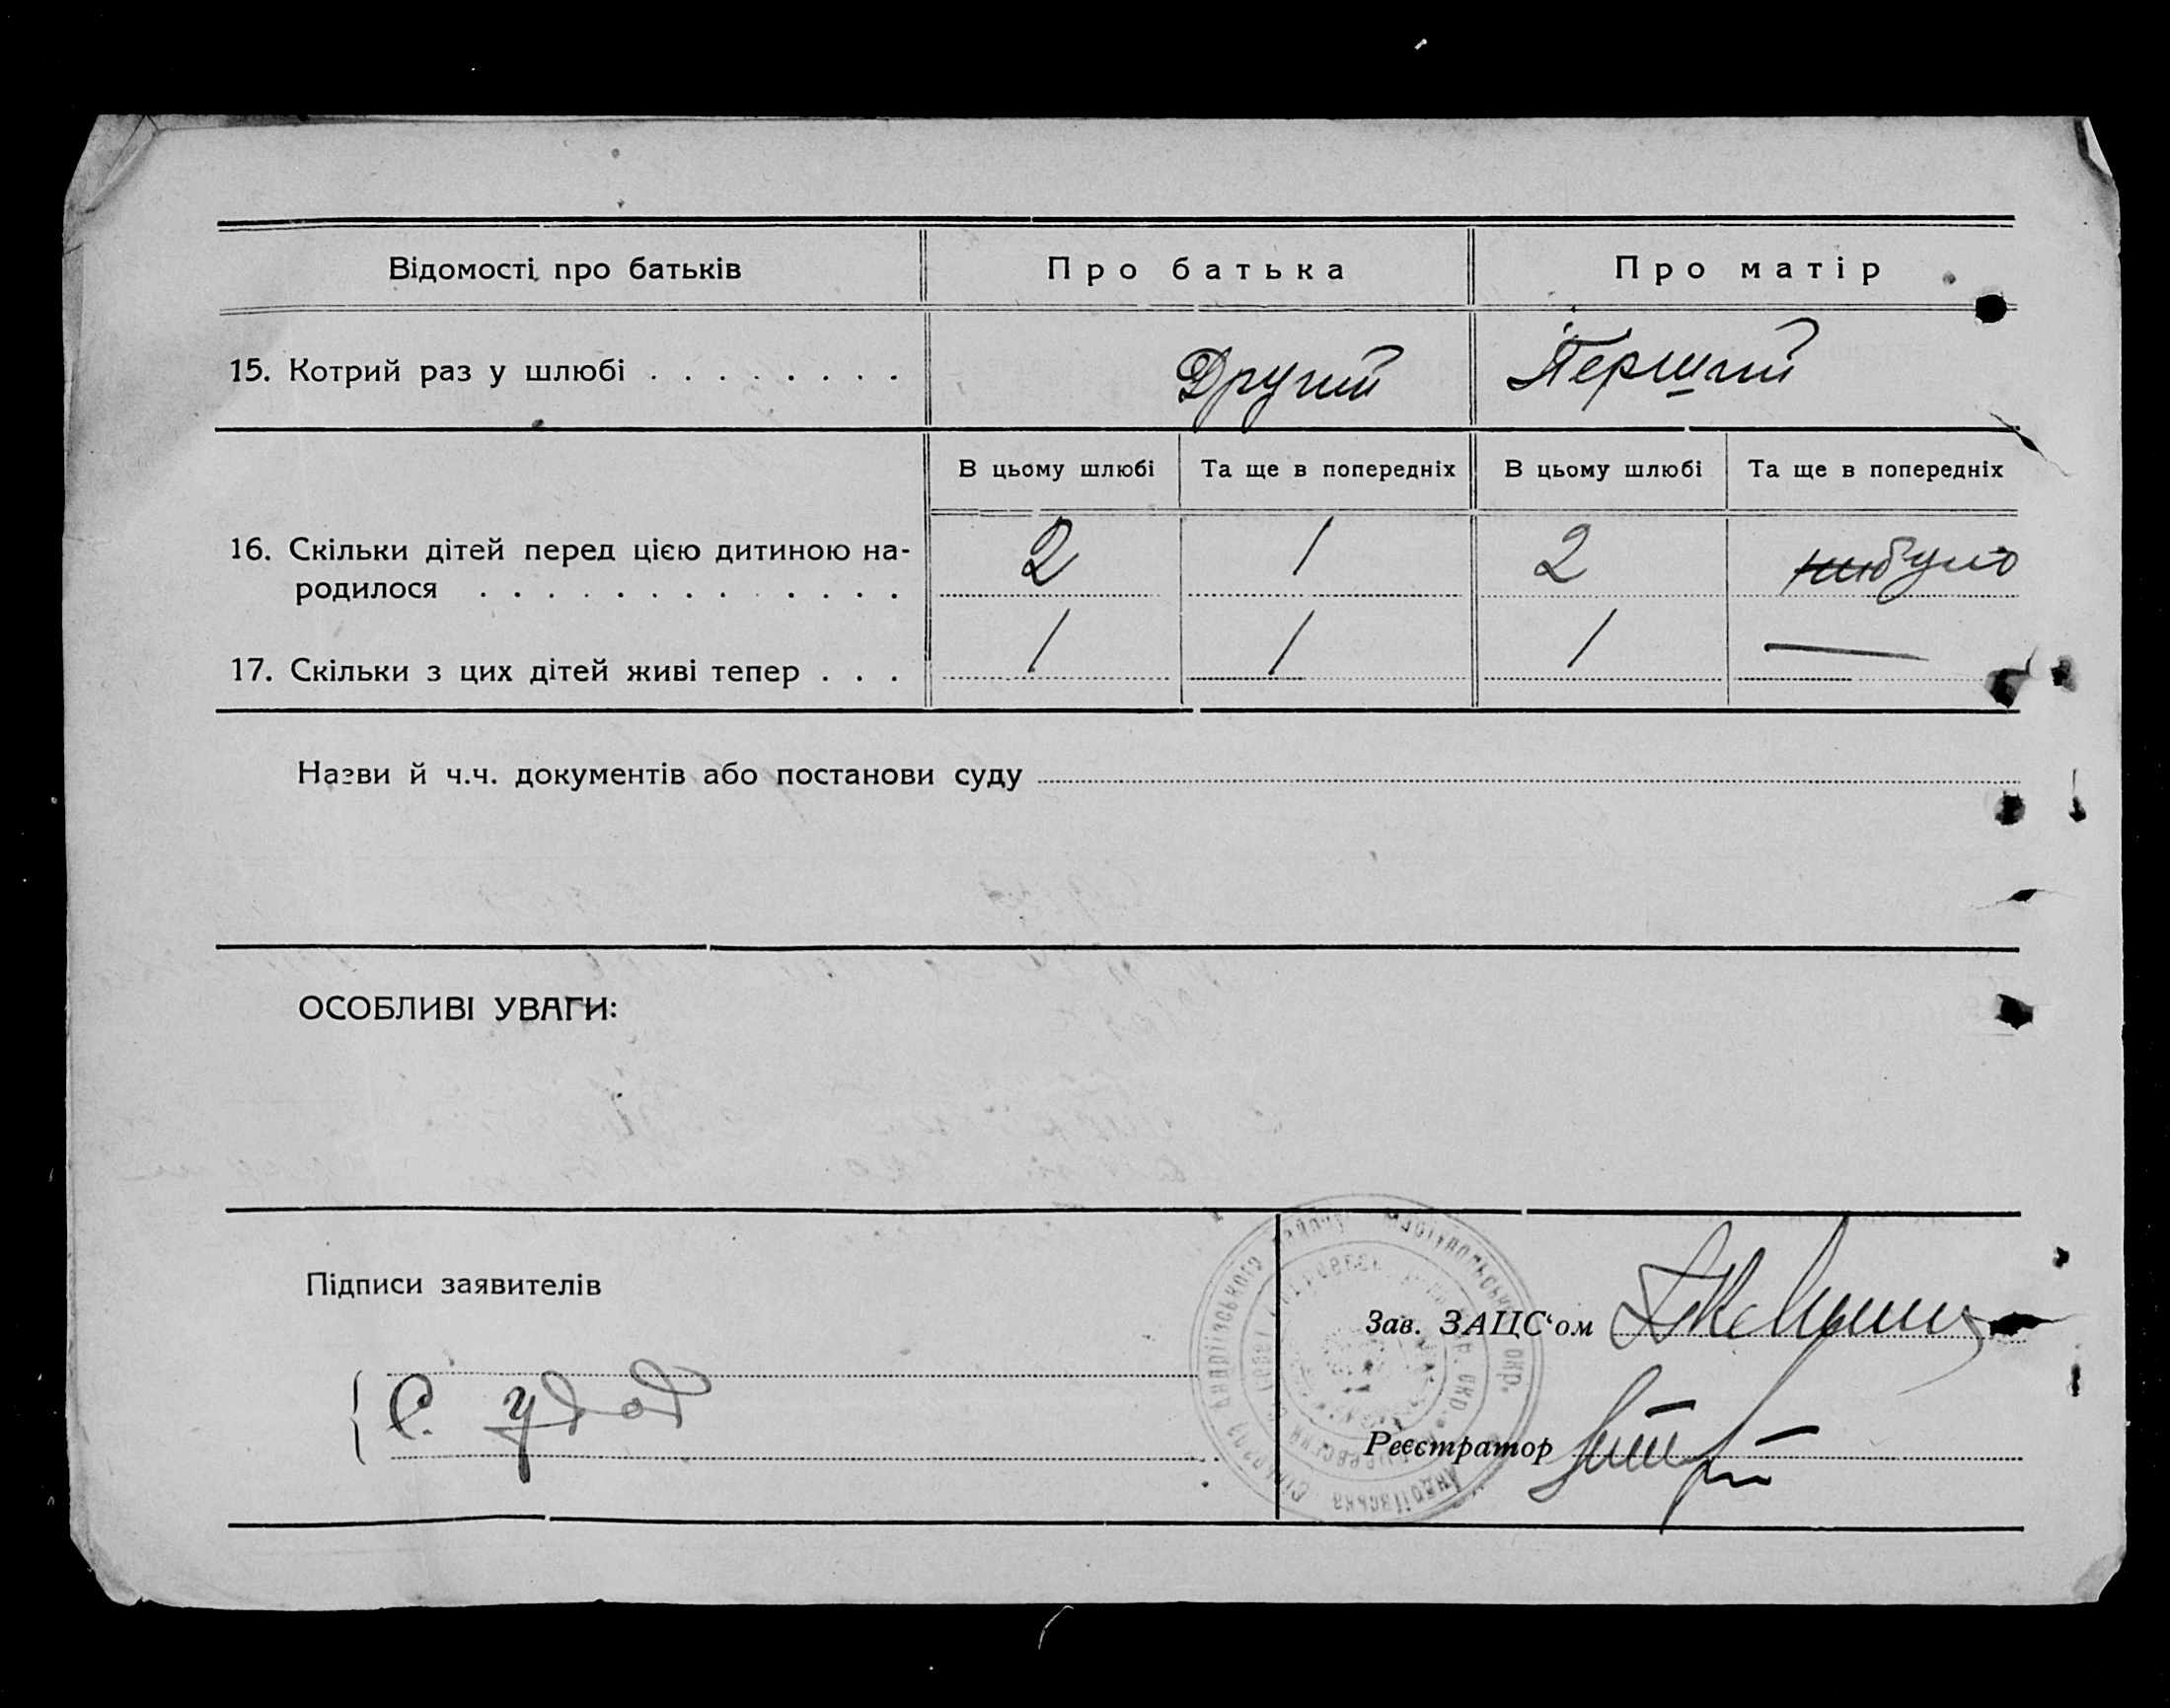 Відомості про батьків Про батька Про матір
15. Котрий раз у шлюбі . . . . . . . . Другий Перший
В цьому шлюбі Та ще в попередніх В цьому шлюбі Та ще в попередніх
16. Скільки дітей перед цією дитиною на-
родилося . . . . . . . . . . . . . 2 1 2 небуло
17. Скільки з цих дітей живі тепер . . . 1 1 1 —
Назви й ч.ч. документів або постанови суду
ОСОБЛИВІ УВАГИ:
Підписи заявителів
С. Удод
Зав. ЗАЦС‘ом
Реєстратор
Андріївського району Маріупольської окр.
Андріївська